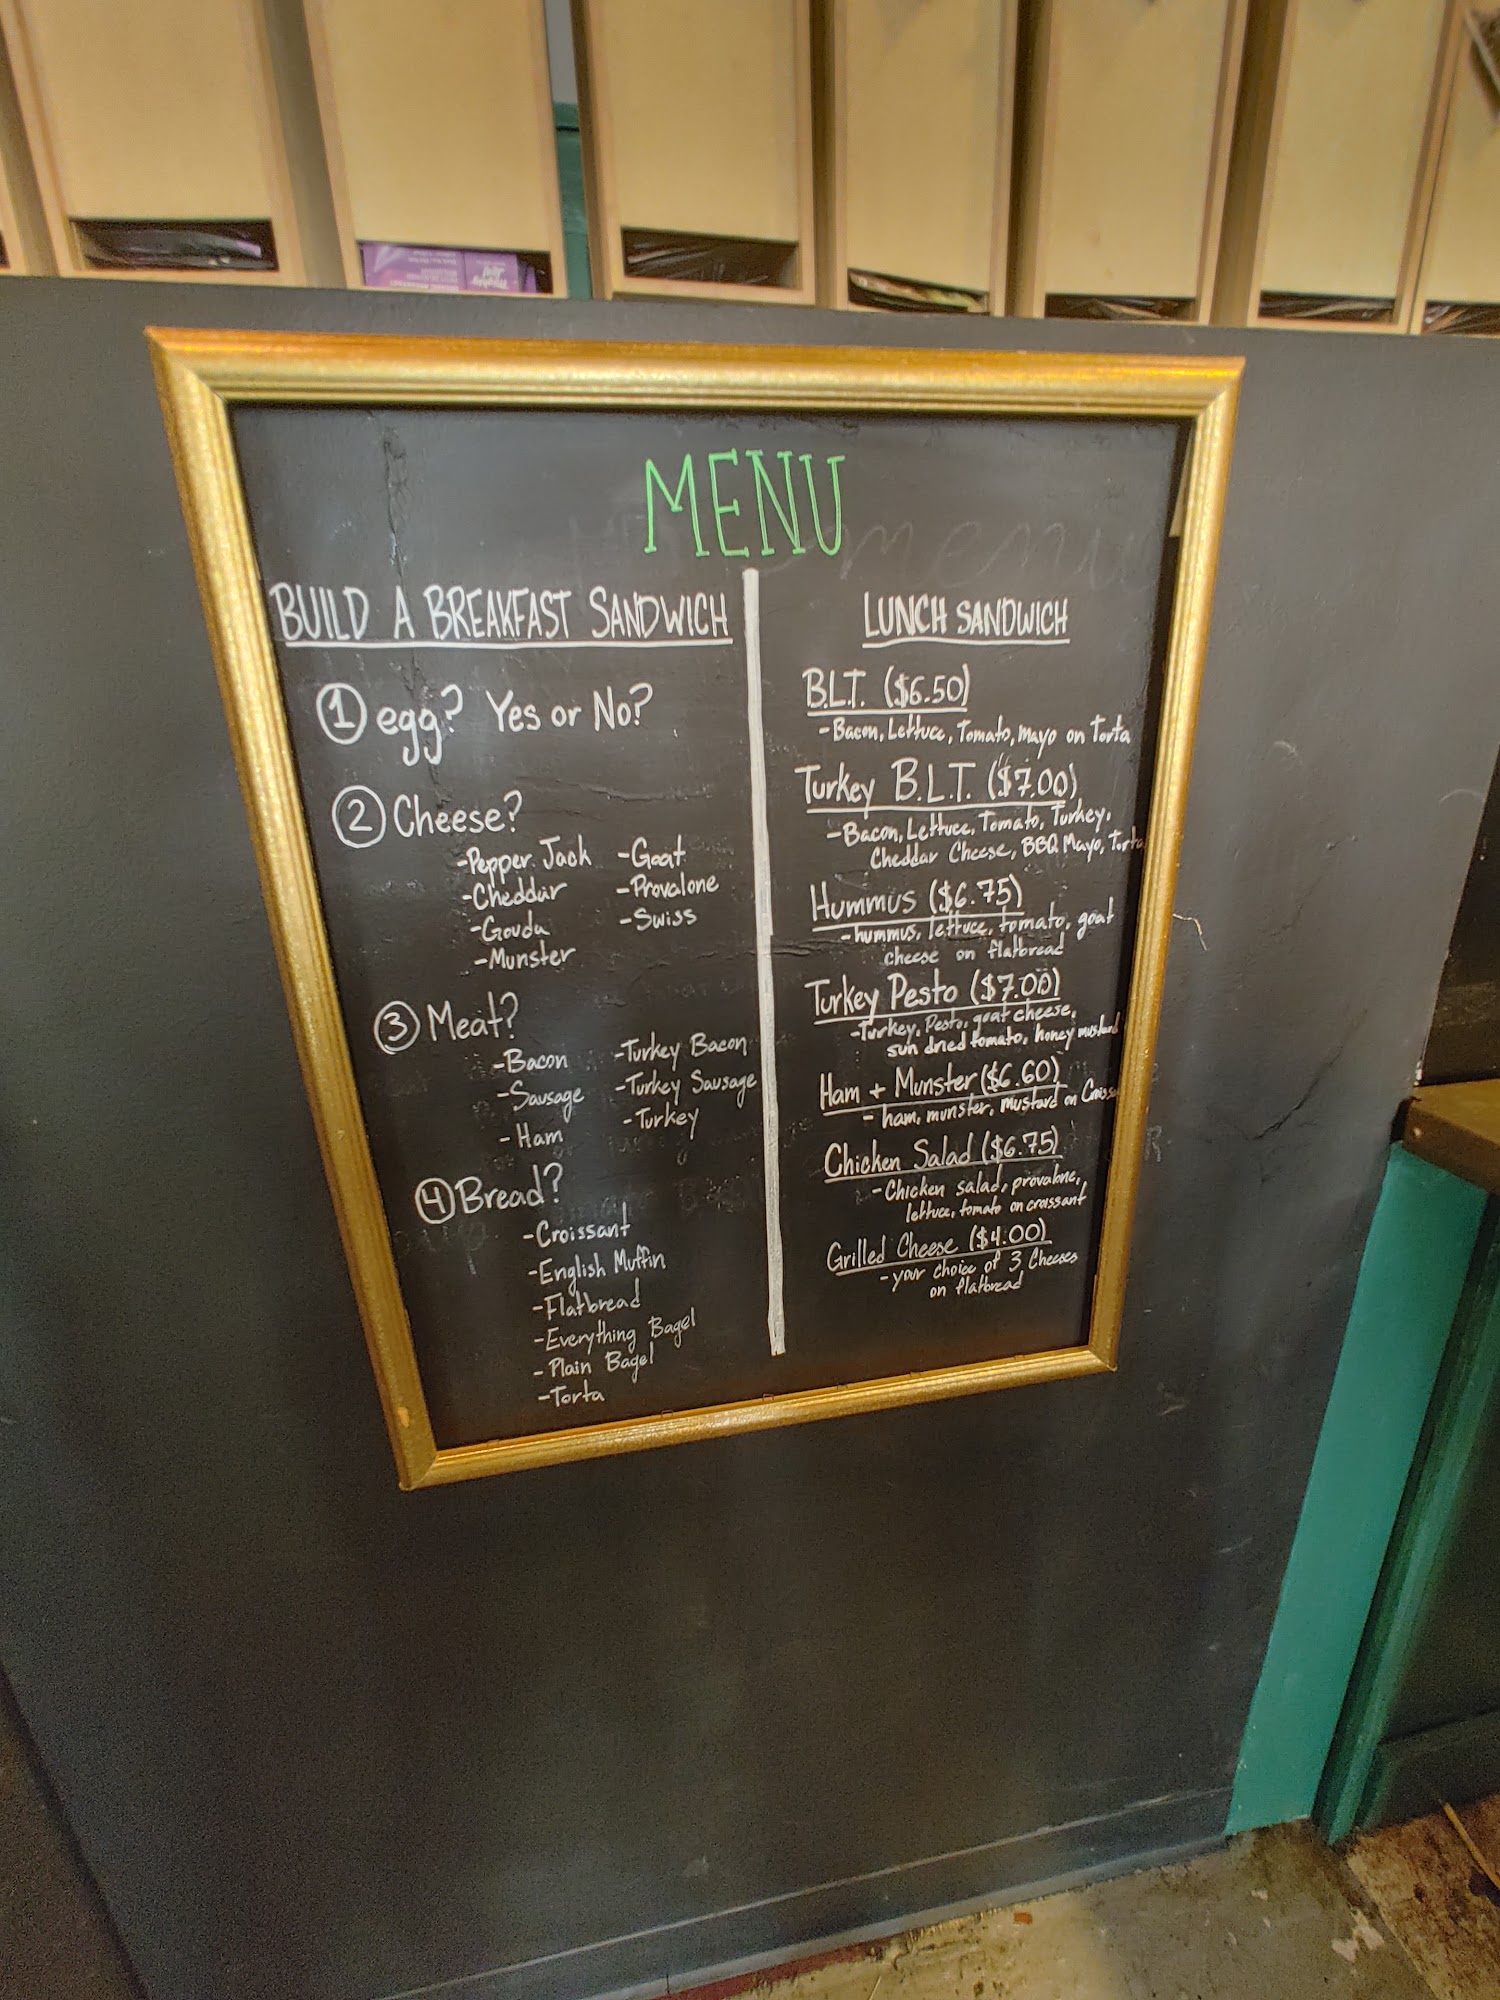 MENU
BUILD A BREAKFAST SANDWICH
① egg? Yes or No?
② Cheese?
-Pepper Jack
-Cheddar
-Gouda
-Munster
-Goat
-Provalone
-Swiss
③ Meat?
-Bacon
-Sausage
-Ham
-Turkey Bacon
-Turkey Sausage
-Turkey
④ Bread?
-Croissant
-English Muffin
-Flatbread
-Everything Bagel
-Plain Bagel
-Torta
LUNCH SANDWICH
B.L.T. ($6.50)
-Bacon, Lettuce, Tomato, mayo on Torta
Turkey B.L.T. ($7.00)
-Bacon, Lettuce, Tomato, Turkey,
Cheddar Cheese, BBQ Mayo, Torta
Hummus ($6.75)
-hummus, lettuce, tomato, goat
cheese on flatbread
Turkey Pesto ($7.00)
-Turkey, Pesto, goat cheese,
sun dried tomato, honey mustard
Ham + Munster ($6.60)
- ham, munster, mustard on Croiss
Chicken Salad ($6.75)
-Chicken salad, provalone,
lettuce, tomato on croissant
Grilled Cheese ($4.00)
-your choice of 3 Cheeses
on flatbread